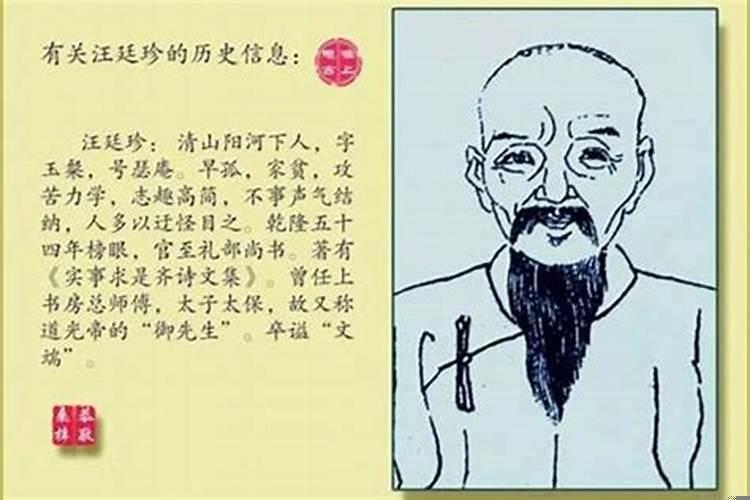 有关汪廷珍的历史信息：
汪廷珍： 清山阳河下人，字
玉粲，号瑟庵。早孤，家贫，攻
苦力学，志趣高简，不事声气结
纳，人多以迂怪目之。乾隆五十
四年榜眼，官至礼部尚书。著有
《实事求是齐诗文集》。曾任上
书房总师傅，太子太保，故又称
道光帝的“御先生”。卒谥“文
端”。
桑恭
梓敬